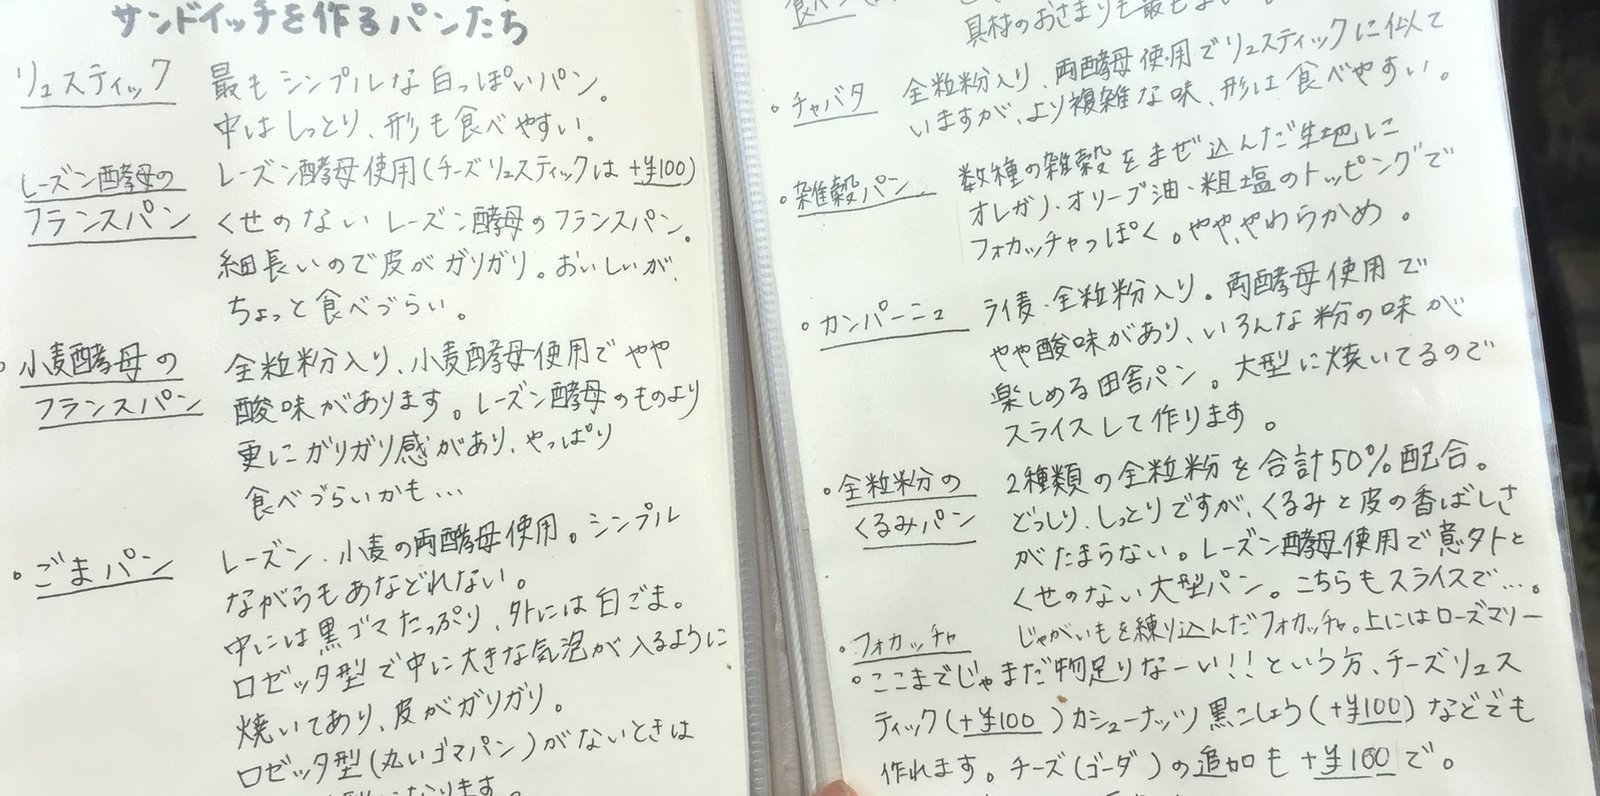 サンドイッチを作るパンたち
リュスティック
最もシンプルな白っぽいパン。
中はしっとり、形も食べやすい。
レーズン酵母使用(チーズリュスティックは+¥100)
レーズン酵母の
フランスパン
くせのないレーズン酵母のフランスパン。
細長いので皮がガリガリ。おいしいが、
ちょっと食べづらい。
・小麦酵母の
フランスパン
全粒粉入り、小麦酵母使用でやや
酸味があります。レーズン酵母のものより
更にガリガリ感があり、やっぱり
食べづらいかも…
・ごまパン
レーズン・小麦の両酵母使用。シンプル
ながらもあなどれない。
中には黒ゴマたっぷり、外には白ごま。
ロゼッタ型で中に大きな気泡が入るように
焼いてあり、皮がガリガリ。
ロゼッタ型(丸いゴマパン)がないときは
なります。
食パン
具材のおさまりも最も
・チャバタ
全粒粉入り、両酵母使用でリュスティックに似て
いますが、より複雑な味、形は食べやすい。
・雑穀パン
数種の雑穀をまぜ込んだ生地に
オレガノ・オリーブ油・粗塩のトッピングで
フォカッチャっぽく。やや、やわらかめ。
・カンパーニュ
ライ麦・全粒粉入り。両酵母使用で
やや酸味があり、いろんな粉の味が
楽しめる田舎パン。大型に焼いてるので
スライスして作ります。
・全粒粉の
くるみパン
2種類の全粒粉を合計50%配合。
どっしり、しっとりですが、くるみと皮の香ばしさ
がたまらない。レーズン酵母使用で意外と
くせのない大型パン。こちらもスライスで…。
・フォカッチャ
じゃがいもを練り込んだフォカッチャ。上にはローズマリー
・ここまでじゃまだ物足りなーい!!という方、チーズリュス
ティック(+¥100)カシューナッツ黒こしょう(+¥100)などでも
作れます。チーズ(ゴーダ)の追加も+¥100で。